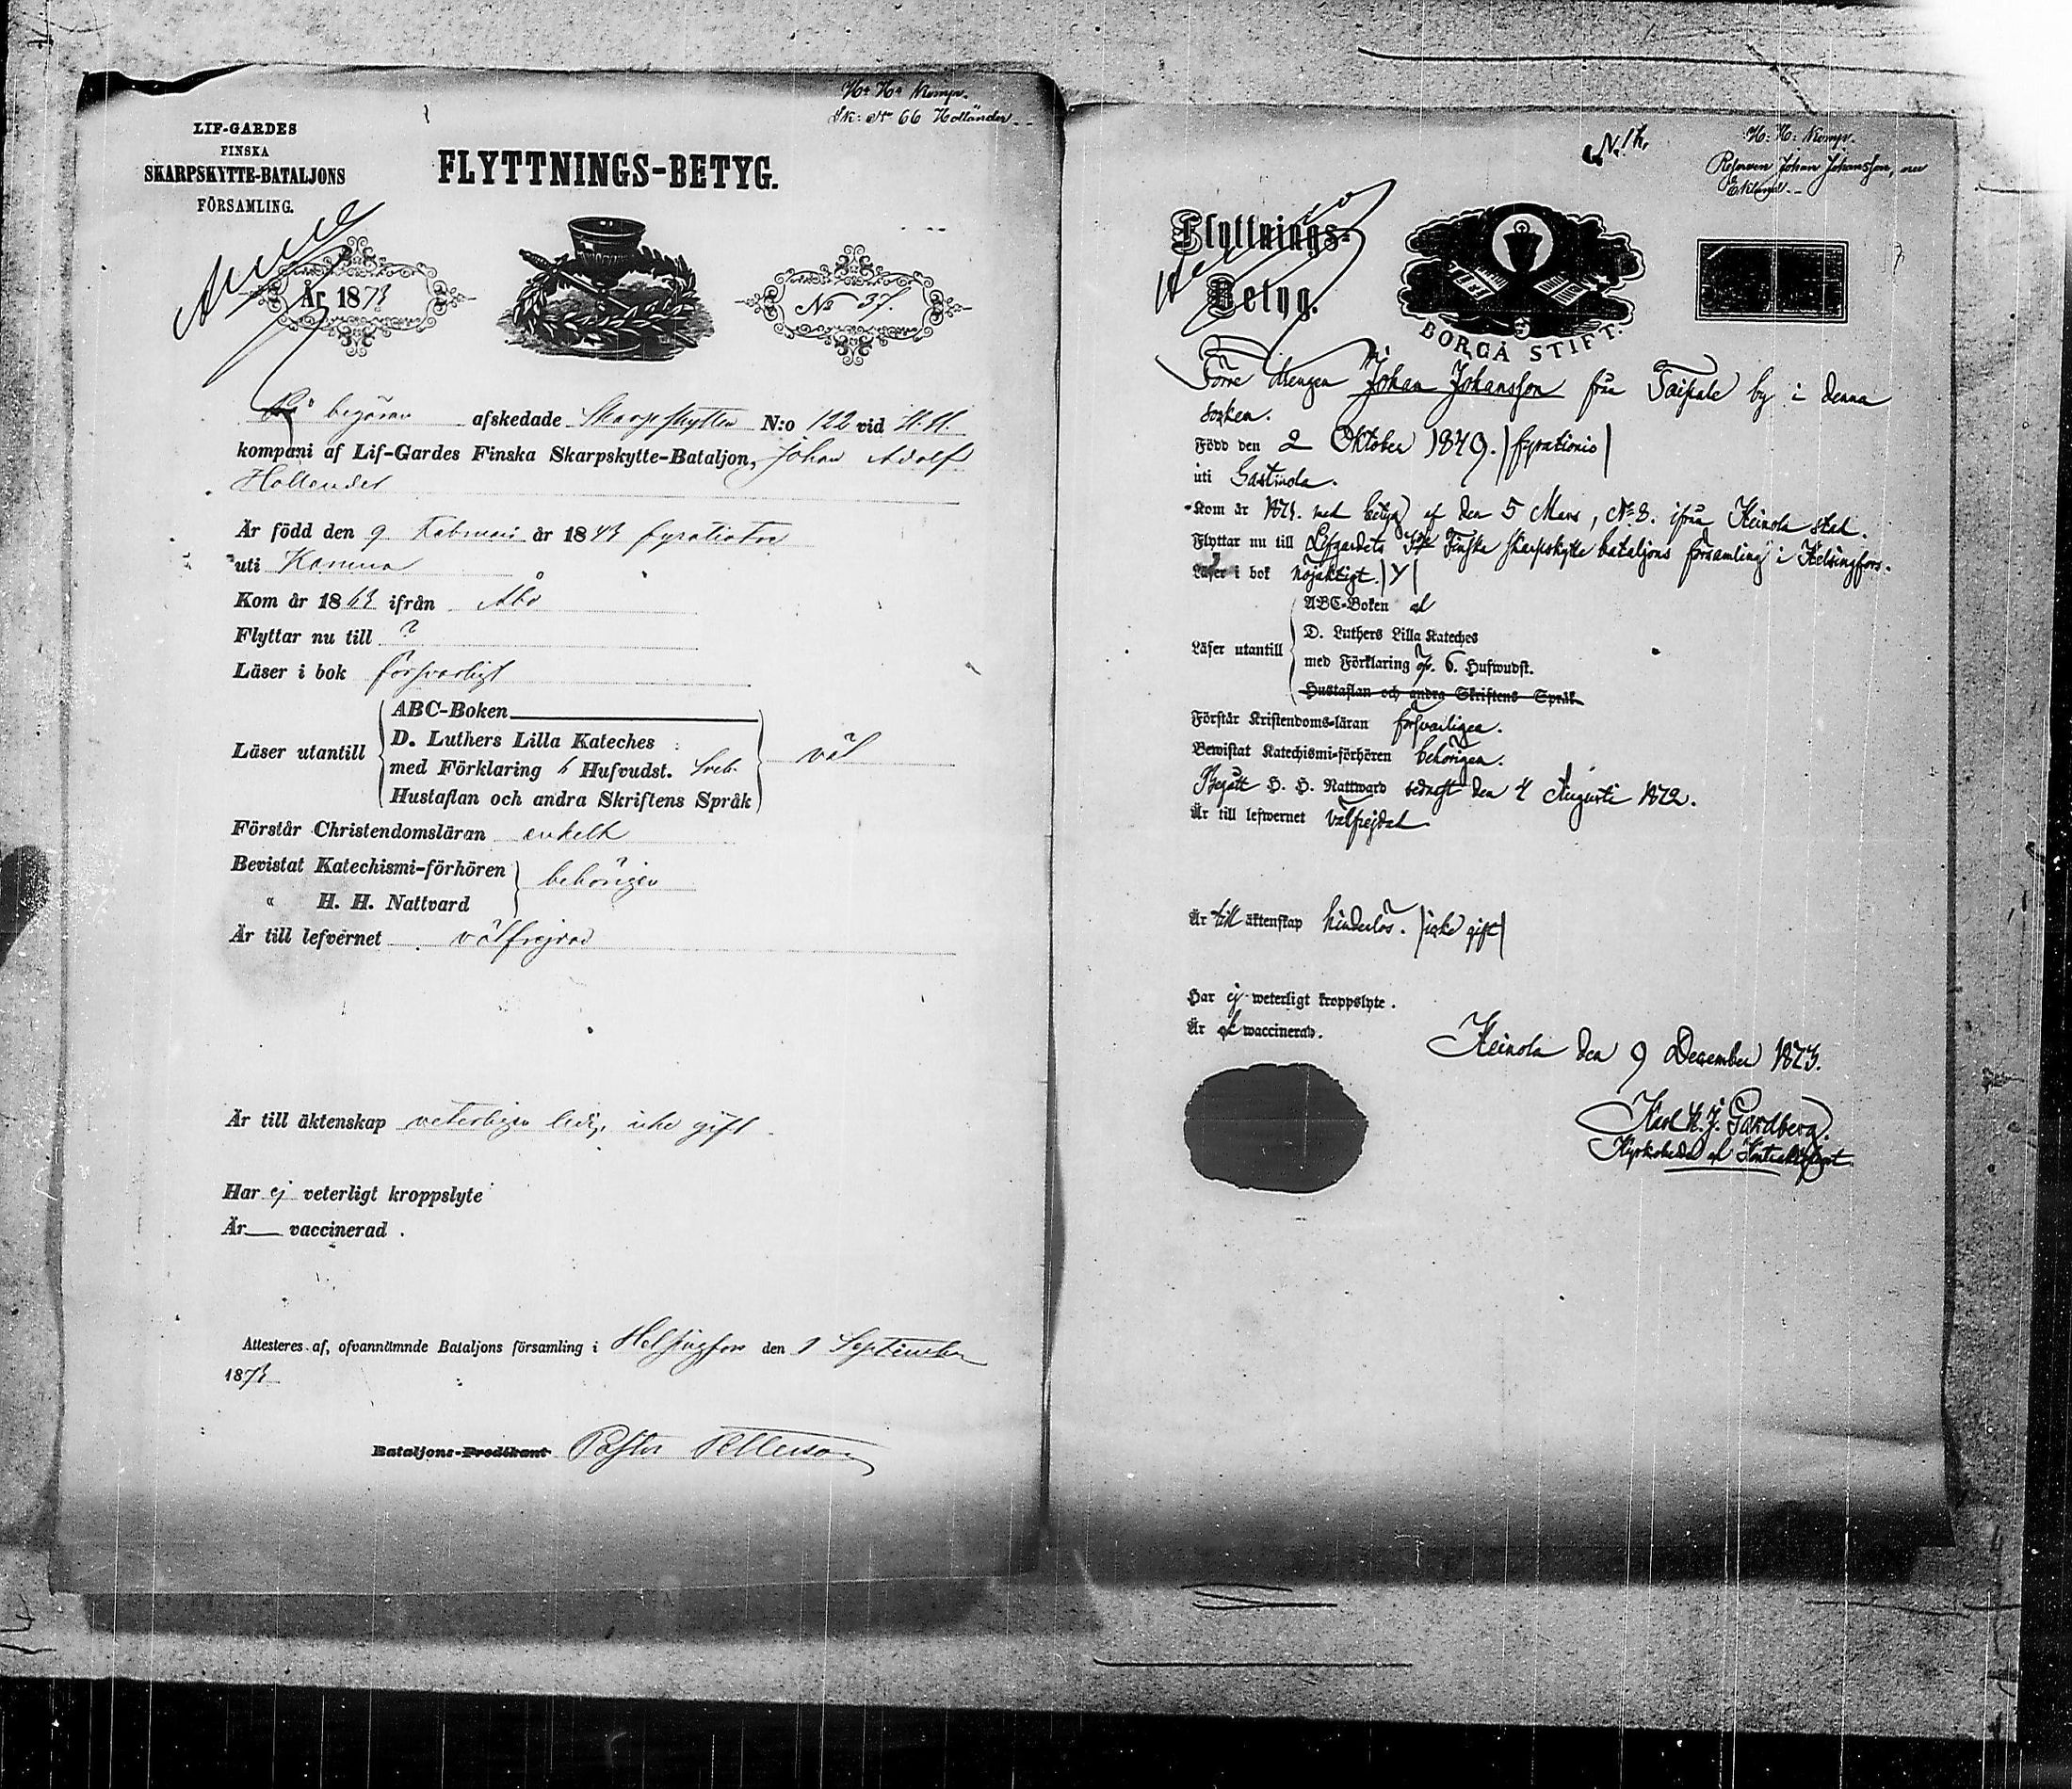 H: H: Komp.
Sk: No 66 Holländer
LIF-GARDES
FINSKA
SKARPSKYTTE-BATALJONS
FÖRSAMLING.
FLYTTNINGS-BETYG.
År 1873
No 37.
På begäran afskedade Skarpskytten N:o 122 vid H.H.
kompani af Lif-Gardes Finska Skarpskytte-Bataljon, Johan Adolf
Hollender
Är född den 9 Februari år 1843 fyratiotre
uti
Kom år 1863 ifrån Åbo
Flyttar nu till ?
Läser i bok försvarligt
Läser utantill
ABC-Boken
D. Luthers Lilla Kateches
med Förklaring 6 Hufvudst. Sveb.
Hustaflan och andra Skriftens Språk
väl
Förstår Christendomsläran enkelt
Bevistat Katechismi-förhören
" H. H. Nattvard
behörigen
Är till lefvernet välfrejdad
Är till äktenskap veterligen ledig, icke gift
Har ej veterligt kroppslyte
Är vaccinerad.
Attesteres af, ofvannämnde Bataljons församling i Helsingfors den 1 September
1873
Bataljons-Predikant Pastor
H: H: Komp.
Johan Johansson, nu
Eklund
Flyttnings-
Betyg.
BORGÅ STIFT.
Förre drengen Johan Johansson från Taipale by i denna
socken.
Född den 2 Oktober 1849. (fyrationio)
uti Gästinola.
Kom år 1873. med betyg af den 5 Mars, No 8. ifrån Heinola stad.
Flyttar nu till Lifgardets Finska skarpskytte bataljons församling i Helsingfors.
Läser i bok nöjaktigt.
Läser utantill
ABC-Boken
D. Luthers Lilla Kateches
med Förklaring öfv. 6. Hufwudst.
Hustaflan och andra Skriftens Språk
Förstår Kristendoms-läran försvarligen.
Bewistat Katechismi-förhören behörigen.
Begått H. H. Nattward sednast den 4 Augusti 1872.
Är till lefwernet välfrejdad
Är till äktenskap hinderlös. (icke gift)
Har ej weterligt kroppslyte.
Är waccinerad.
Heinola den 9 December 1873.
Karl H. J. Gardberg.
Kyrkoherde